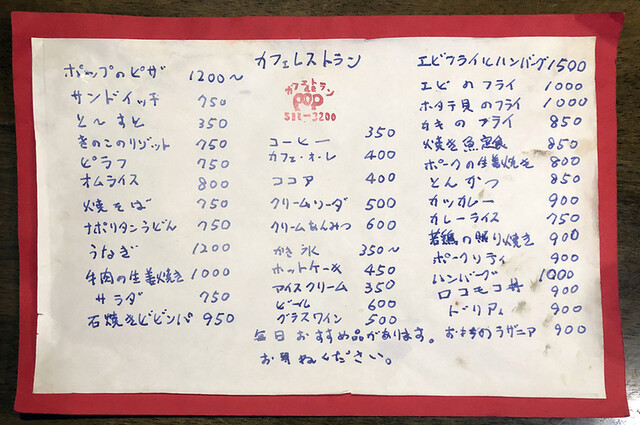 ポップのピザ 1200〜
サンドイッチ 750
と〜すと 350
きのこのリゾット 750
ピラフ 750
オムライス 800
焼そば 750
ナポリタンうどん 750
うなぎ 1200
牛肉の生姜焼き 1000
サラダ 750
石焼きビビンバ 950
カフェレストラン
カフェレストラン
POP
コーヒー 350
カフェ・オ・レ 400
ココア 400
クリームソーダ 500
クリームあんみつ 600
かき氷 350〜
ホットケーキ 450
アイスクリーム 350
ビール 600
グラスワイン 500
毎日おすすめ品があります。
お尋ねください。
エビフライとハンバーグ 1500
エビのフライ 1000
ホタテ貝のフライ 1000
カキのフライ 850
焼き魚定食 850
ポークの生姜焼き 800
とんかつ 850
カツカレー 900
カレーライス 750
若鶏の照り焼き 900
ポークソティ 900
ハンバーグ 1000
ロコモコ丼 900
ドリア 900
おもちのラザニア 900